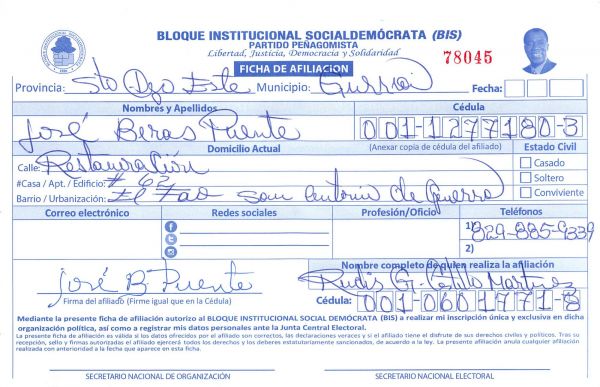 BLOQUE INSTITUCIONAL SOCIALDEMÓCRATA (BIS)
PARTIDO PEÑAGOMISTA
Libertad, Justicia, Democracia y Solidaridad
78045
FICHA DE AFILIACION
Provincia: Sto Dgo Este Municipio: Fecha:
Nombres y Apellidos Cédula
José Beras Puente 001-1277180-3
Domicilio Actual (Anexar copia de cédula del afiliado) Estado Civil
Calle: Restauración Casado
#Casa / Apt. / Edificio: # 62 Soltero
Barrio / Urbanización: San Antonio de Guerra Conviviente
Correo electrónico Redes sociales Profesión/Oficio Teléfonos
1) 829-885-9339
2)
Nombre completo de quien realiza la afiliación
José B Puente Rudis G. Castillo Martinez
Firma del afiliado (Firme igual que en la Cédula) Cédula: 001-0601771-8
Mediante la presente ficha de afiliación autorizo al BLOQUE INSTITUCIONAL SOCIAL DEMÓCRATA (BIS) a realizar mi inscripción única y exclusiva en dicha
organización política, así como a registrar mis datos personales ante la Junta Central Electoral.
La presente ficha de afiliación es válida si los datos ofrecidos por el afiliado son correctos, las declaraciones veraces y si el afiliado tiene el disfrute de sus derechos civiles y políticos. Tras su
recepción, sello y firmas autorizadas el afiliado ejercerá todos los derechos y los deberes estatutariamente sancionados, de acuerdo a la ley. La presente afiliación anula cualquier afiliación
realizada con anterioridad a la fecha que aparece en esta ficha.
SECRETARIO NACIONAL DE ORGANIZACIÓN SECRETARIO NACIONAL ELECTORAL